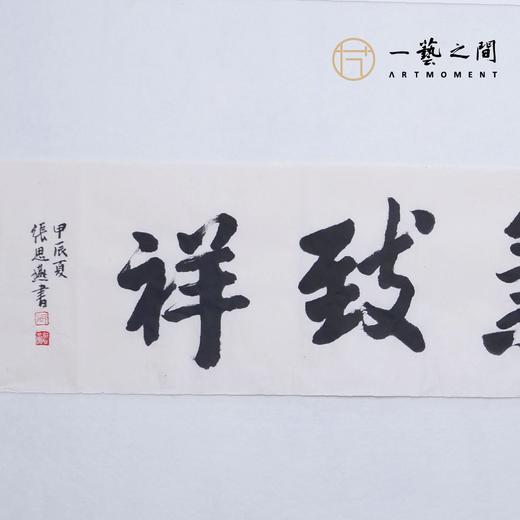 一藝之間
ARTMOMENT
致祥
甲辰夏
張思燕書